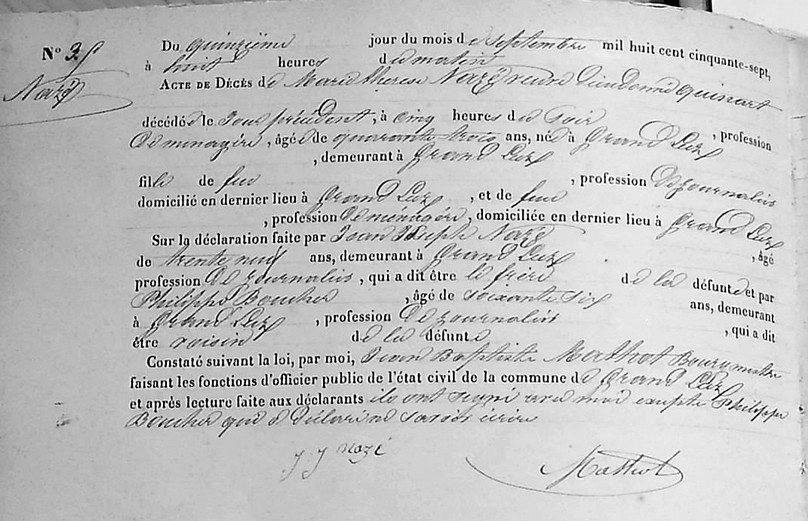 N° 35 Du quinzième jour du mois de septembre mil huit cent cinquante-sept,
Nazé à huit heures du matin
ACTE DE DÉCÈS de Marie therese Nazé veuve Dieudonné quinart
décédée le Jour précédent, à cinq heures du Soir
âgée de quarante trois ans, née à Grand Leez, profession
De ménagère, demeurant à Grand Leez
fille de feu , profession De journalier
domicilié en dernier lieu à Grand Leez, et de feue
, profession De ménagère, domiciliée en dernier lieu à Grand Leez
Sur la déclaration faite par Jean Joseph Nazé , âgé
de trente neuf ans, demeurant à Grand Leez
profession De journalier, qui a dit être le frère de la défunte et par
Philippe Boucher , âgé de soixante six ans, demeurant
à Grand Leez , profession De journalier , qui a dit
être voisin de la défunte
Constaté suivant la loi, par moi, Jean Baptiste Mathot Bourgmestre
faisant les fonctions d'officier public de l'état civil de la commune de Grand Leez
et après lecture faite aux déclarants ils ont signé avec moi excepté Philippe
Boucher qui a déclaré ne savoir écrire
J J Nazé Mathot